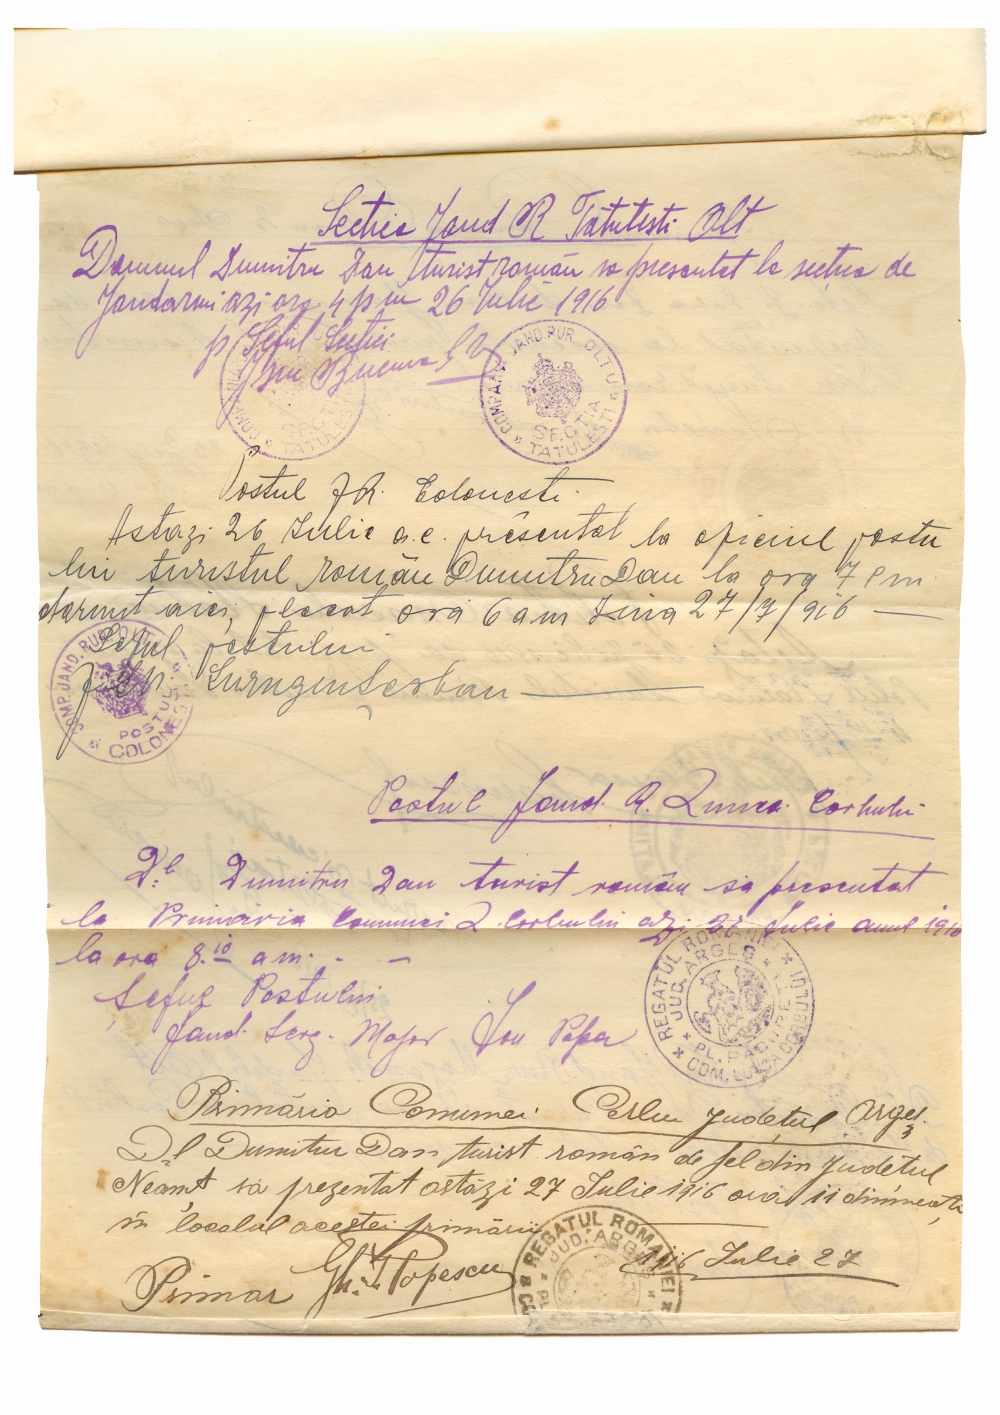 Secția Jand R Tătulești Olt
Domnul Dumitru Dan turist român sa presentat la secția de
Jandarmi azi ora 4 p m 26 Iulie 1916
p Șeful Secției
COMPANIA JAND. RUR. OLTUL
SECTIA
TATULESTI
Postul J R. Colonesti
Astazi 26 Iulie a.c. prêsentat la oficiul postu
lui turistul român Dumitru Dan la ora 7 p m.
dormit aici, plecat ora 6 am ziua 27/7/916
Șeful postului
COMP. JAND. RUR. OLT
POSTUL
COLONESTI
Postul Jand. R. Lunca Corbului
D.l Dumitru Dan turist român sa presentat
la Primăria Comunei L. Corbului azi 27 Iulie anul 1916
la ora 8.10 a m. -
Șeful Postului
Jand. Serg. Major Ion Popa
REGATUL ROMANIEI
JUD. ARGES
PL. PADURETI
COM. LUNCA CORBULUI
Primăria Comunei Corbu Județul Argeș
D.l Dumitru Dan turist român de fel din Județul
Neamț sa prezentat astăzi 27 Iulie 1916 ora 11 dimineața
în localul acestei primării
1916 Iulie 27
Primar Gh. Popescu
REGATUL ROMANIEI
JUD. ARGES